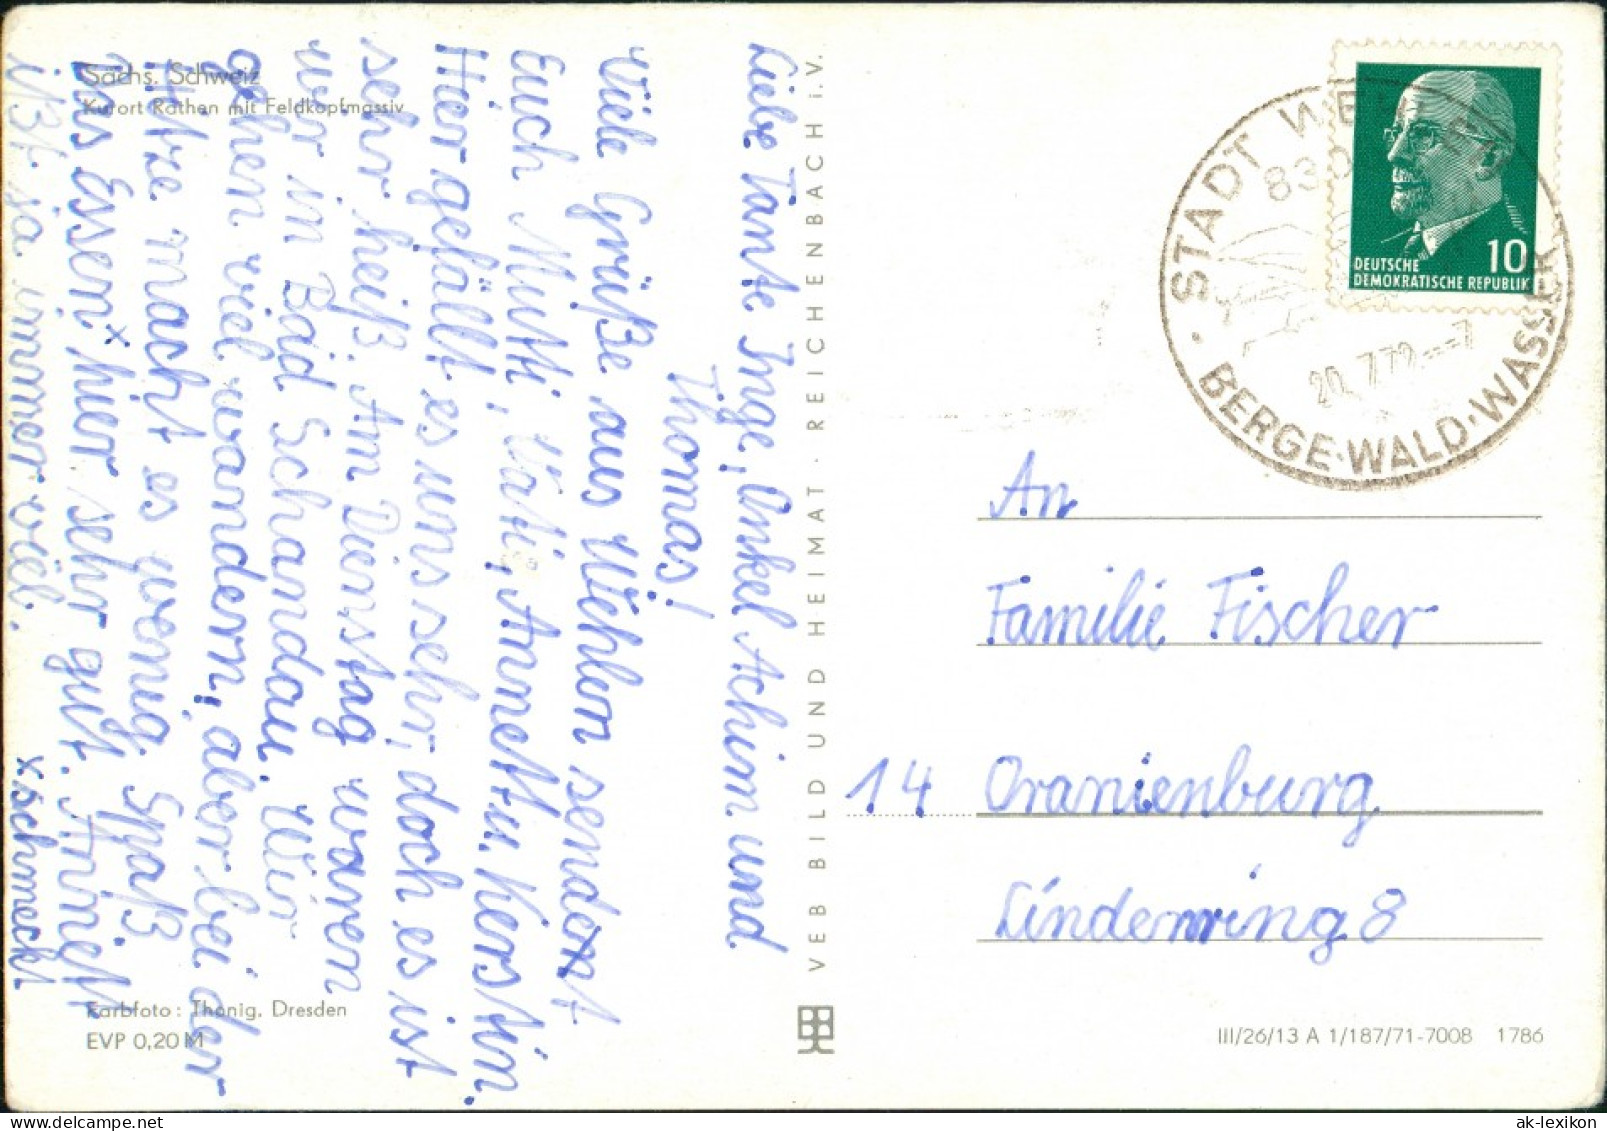 Sächs. Schweiz
Kurort Rathen mit Feldkopfmassiv
Liebe Tante Inge, Onkel Achim und
Thomas!
Viele Grüße aus Wehlen senden
Euch Mutti, Vati, Annett u. Kerstin.
Hier gefällt es uns sehr, doch es ist
sehr heiß. Am Dienstag waren
wir in Bad Schandau. Wir
gehen viel wandern, aber bei der
Hitze macht es wenig Spaß.
Das Essen x hier sehr gut. Annett
ißt ja immer viel.
x schmeckt
Farbfoto: Thonig, Dresden
EVP 0,20 M
VEB BILD UND HEIMAT · REICHENBACH i. V.
STADT WEHLEN
830
20. 7.72 -- 7
· BERGE · WALD · WASSER
10
DEUTSCHE
DEMOKRATISCHE REPUBLIK
An
Familie Fischer
14 Oranienburg
Lindenring 8
III/26/13 A 1/187/71-7008 1786
ak-lexikon